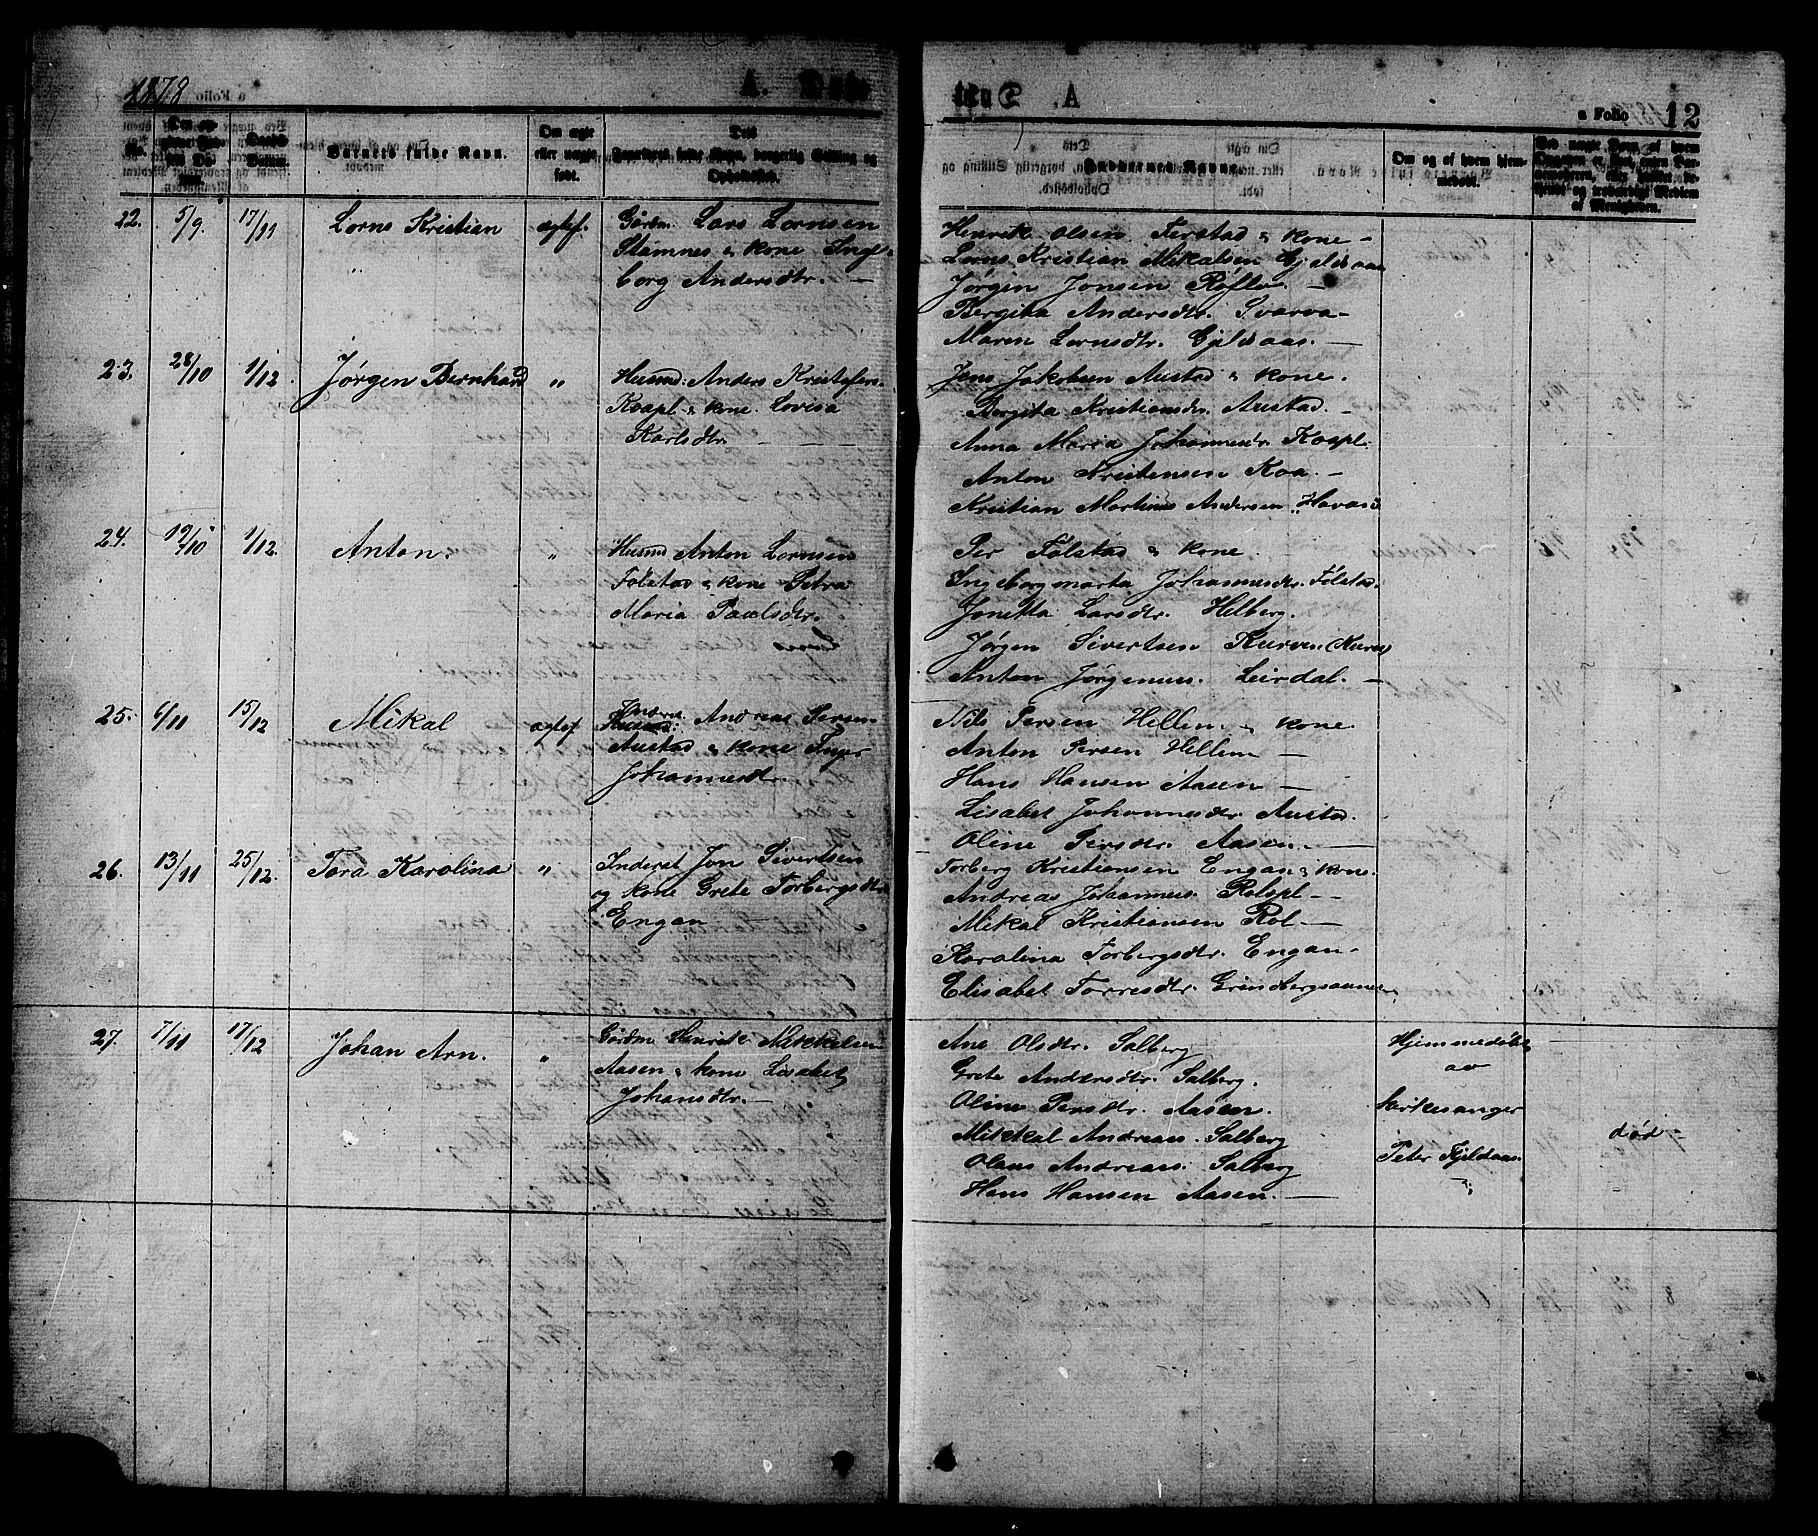 1878
A.
a Folio 12
Barnets fulde Navn.
Om ægte eller uægte født.
Faddernes Navne.
Om og af hvem hjemmedøbt.
22. 5/9. 17/11 Lorns Kristian ægtef. Gårdm. Lars Lornsen
Stamnes & kone Inge-
borg Andersdtr. —
Henrik Olsen Ferstad & kone —
Lorns Kristian Mikalsen Gjeldsaas
Jørgen Jonsen Røflo. —
Bergita Andersdtr. Svarva —
Maren Lornsdtr. Gjeldsaas. —
23. 28/10 1/12. Jørgen Bernhard " Husmd: Anders Kristofers.
Koapl. & kone Lovisa
Karlsdtr. —
Jens Jakobsen Austad & kone.
Bergita Kristiansdtr. Austad. —
Anna Maria Johannesdr. Koapl.
Anton Kristensen Koa. —
Kristian Martinus Andersen
24. 1/12. Anton. " Husmd Anton Lornsen
Følstad & kone Petra
Maria Paulsdtr.
Per Følstad & kone.
Ingeborgmarta Johannesdtr. Følstad.
Jonetta Larsdtr. Helberg.
Jørgen Sivertsen Kurven
Anton Jørgenses. Leirdal. —
25. 6/11 15/12 Mikal ægtef. Inderst. Andreas Persen
Austad & kone Inger
Johannesdtr.
Nils Persen Hellem & kone
Anton Persen Hellem —
Hans Hansen Aasen —
Lisabet Johannesdr Austad.
Oline Persdtr. Aasen. —
26. 13/11 25/12. Tora Karolina " Inderst Jon Sivertsen
og kone Grete Torbergsdtr
Engan —
Torberg Kristiansen Engan & kone.
Andreas Johannes. Rolspl —
Mikal Kristiansen Rol —
Karolina Torbergsdtr. Engan —
Elisabet Torresdtr. Grindbergsaunet
27. 7/11 17/12 Johan Arn. " Gårdm Henrik Mikkelsen
Aasen & kone Lisabet
Johansdtr. —
Ane Olsdtr. Salberg
Grete Andersdtr. Salberg.
Oline Persdtr. Aasen.
Mikkal Andreas. Salberg
Olaus Andreas. Salberg
Hans Hansen Aasen. —
Hjemmedøbt
av
kirkesanger
Peter Gjeldsaas.
død